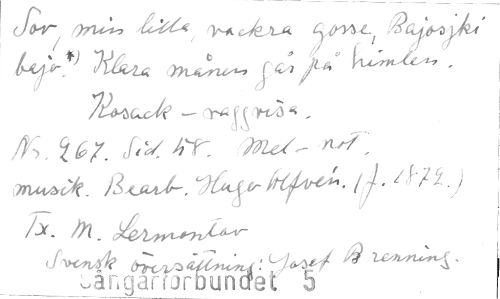 Sov, min lilla, vackra gosse, Bajosjki
bajo.*) Klara månen går på himlen.
Kosack – vaggvisa.
Nr. 267. Sid. 48. Mel – not.
musik. Bearb. Hugo Alfvén. (f. 1872.)
Tx. M. Lermontov
Svensk översättning: Josef Brenning.
Sångarförbundet 5